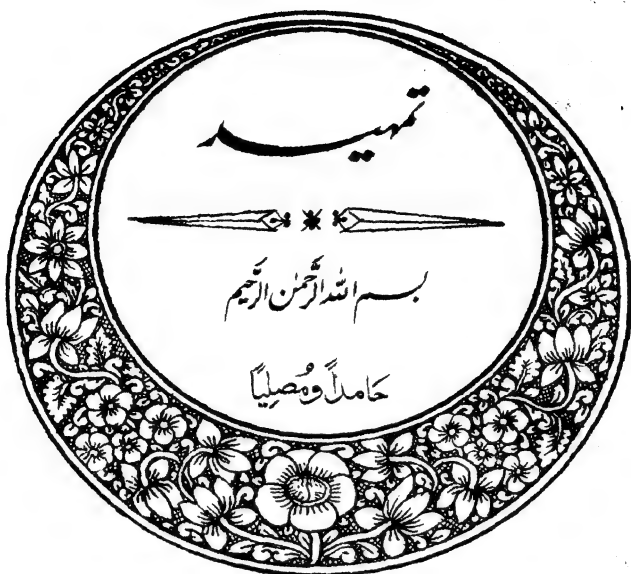 تمہید
بسم اللہ الرَّحمٰن الرَّحیم
حَامداً وَّمُصلِیاً